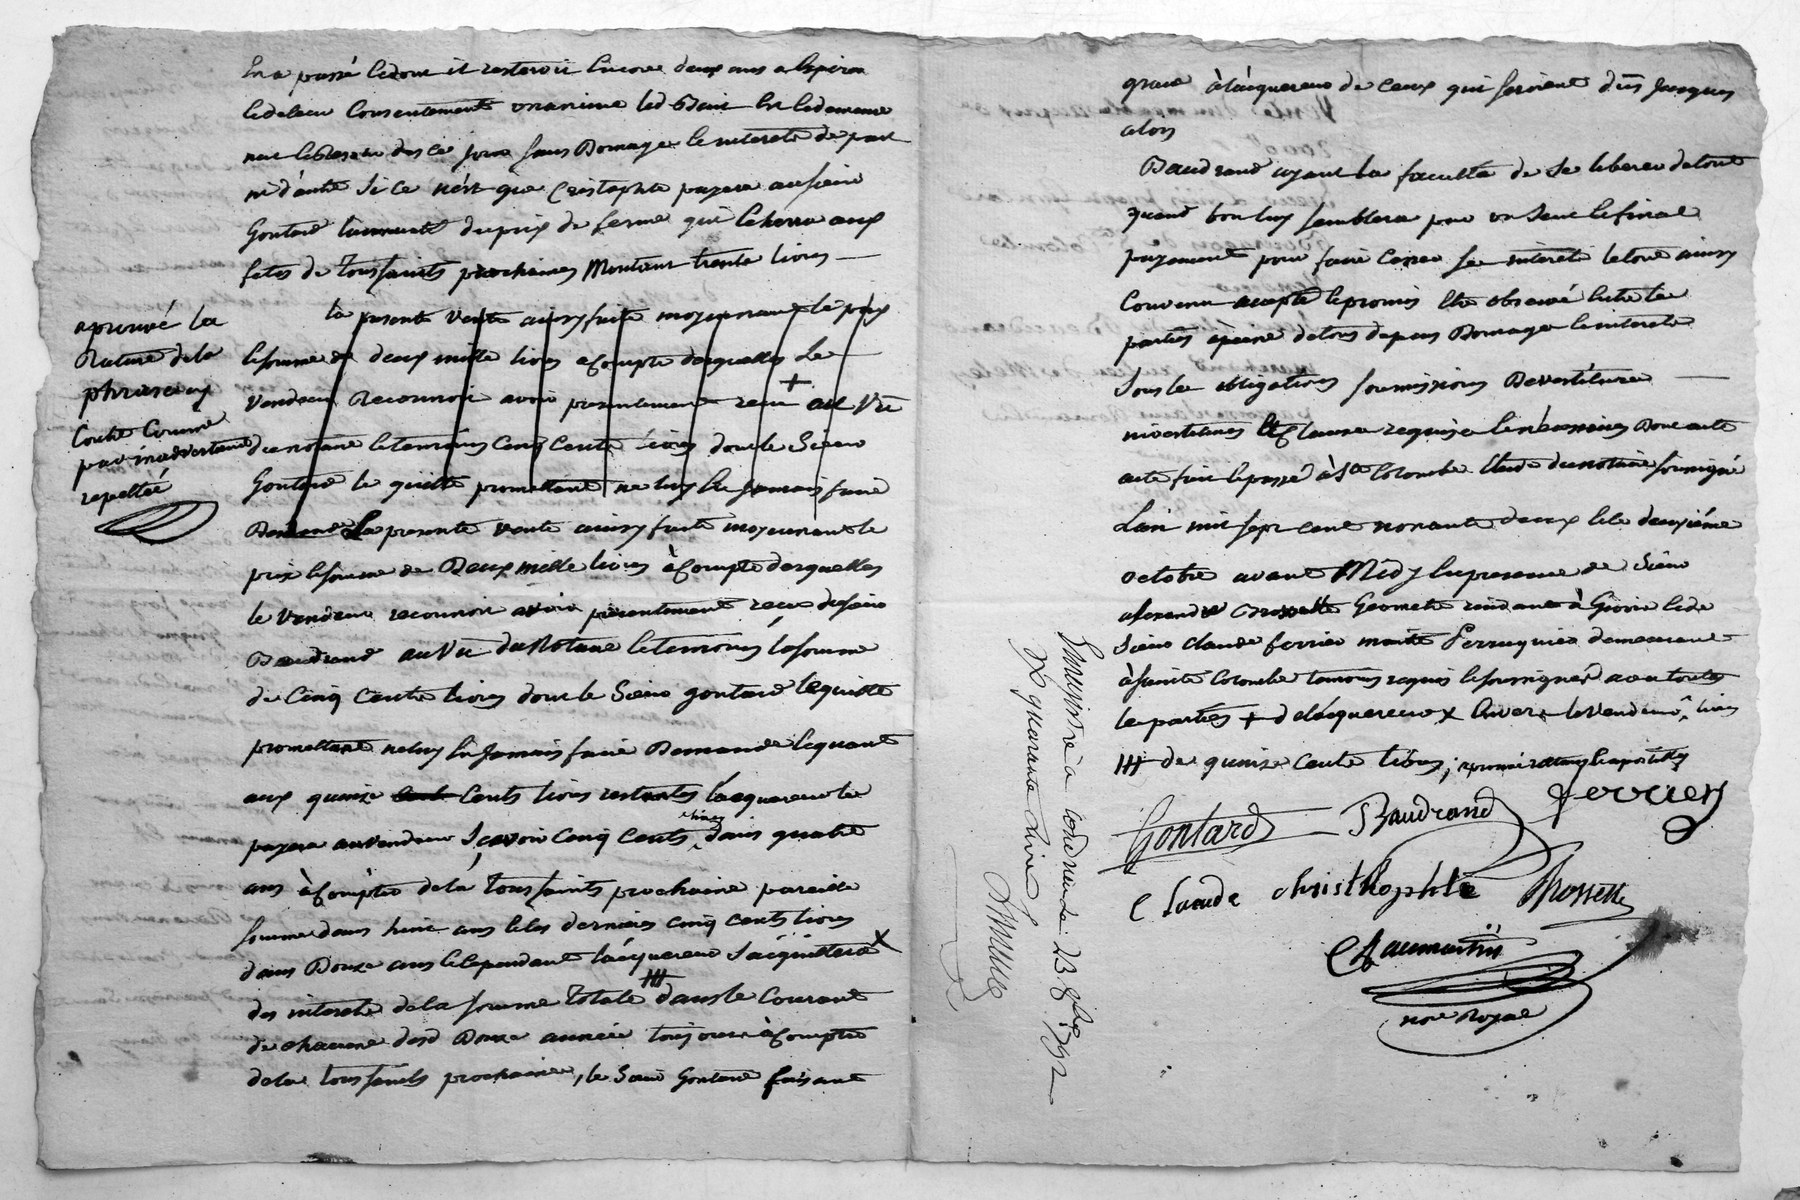 en a passé ledout il resteroit encore deux ans a Expirer
consentement unanime led Bail en
ne ce jour sans Domage et interets de part
ni d'autre si ce n'est que Cristophle payera au sieur
Gontard du prix de ferme qui aux
fetes de toussaints prochaines Montant trente livres
la presente vente ainsy faite moyennant le prix
et somme de deux mille livres acompte desquelles Le
vendeur Reconnoit avoir presentement recu + au Vû
du notaire et temoins Cinq Cents livres dont le Sieur
Gontard le quitte promettant ne luy en Jamais faire
Demande La presente vente ainsy faite moyennant le
prix et somme de Deux mille livres à Compte desquelles
le Vendeur reconnoit avoir présentement recu du sieur
Baudrand au Vû du Notaire et temoins la somme
de Cinq Cents livres dont le Sieur gontard le quitte
promettant ne luy en Jamais faire Demande et quant
aux quinze cent Cents livres restantes l'acquereur les
payera au vendeur Scavoir Cinq Cents livres dans quatre
ans à Compter de la Toussaints prochaine pareille
somme dans huit ans et les derniers cinq cents livres
dans Douze ans et cependant l'acquereur s'acquittera x
des interets de la somme totale ### dans le Courant
de chacune desd Douze année toujours à Compter
de la toussaints prochaine, le Sieur Gontard faisant
aprouvé la
Rature de la
phrase cy
Contre Comme
par inadvertance
repettée
grace à l'acquereur de Ceux qui seroient dûs jusques
alors
Baudrand ayant la faculté de se liberer du tout
quand bon luy semblera par un seul et final
payement pour faire Cesser les interets le tout ainsy
Convenu accepté et promis etre observé entre les
parties à peine de tous depens Domages et interets
Sous les obligations soumissions Devestitures
investitures et Clauses requises et nécessaires Dont acte
acte fait et passé à Ste Colombe Etude du notaire soussigné
L'an mil sept cent nonante deux et le deuxième
octobre avant Midy en presence de Sieur
alexandre Brossette Geometre residant à Givors et de
Sieur Claude ferrier maitre Perruquier demeurant
à Sainte Colombe temoins requis et soussignés avec toutes
les parties + de l'acquereur x Envers le Vendeur
### de quinze cents livres;
Gontard Baudrand ferrier
Claude christhophle Brossette
Chaumartin
nore Royal
Enregistré à Condrieu le 23 8bre 1792
Rx quarante livres